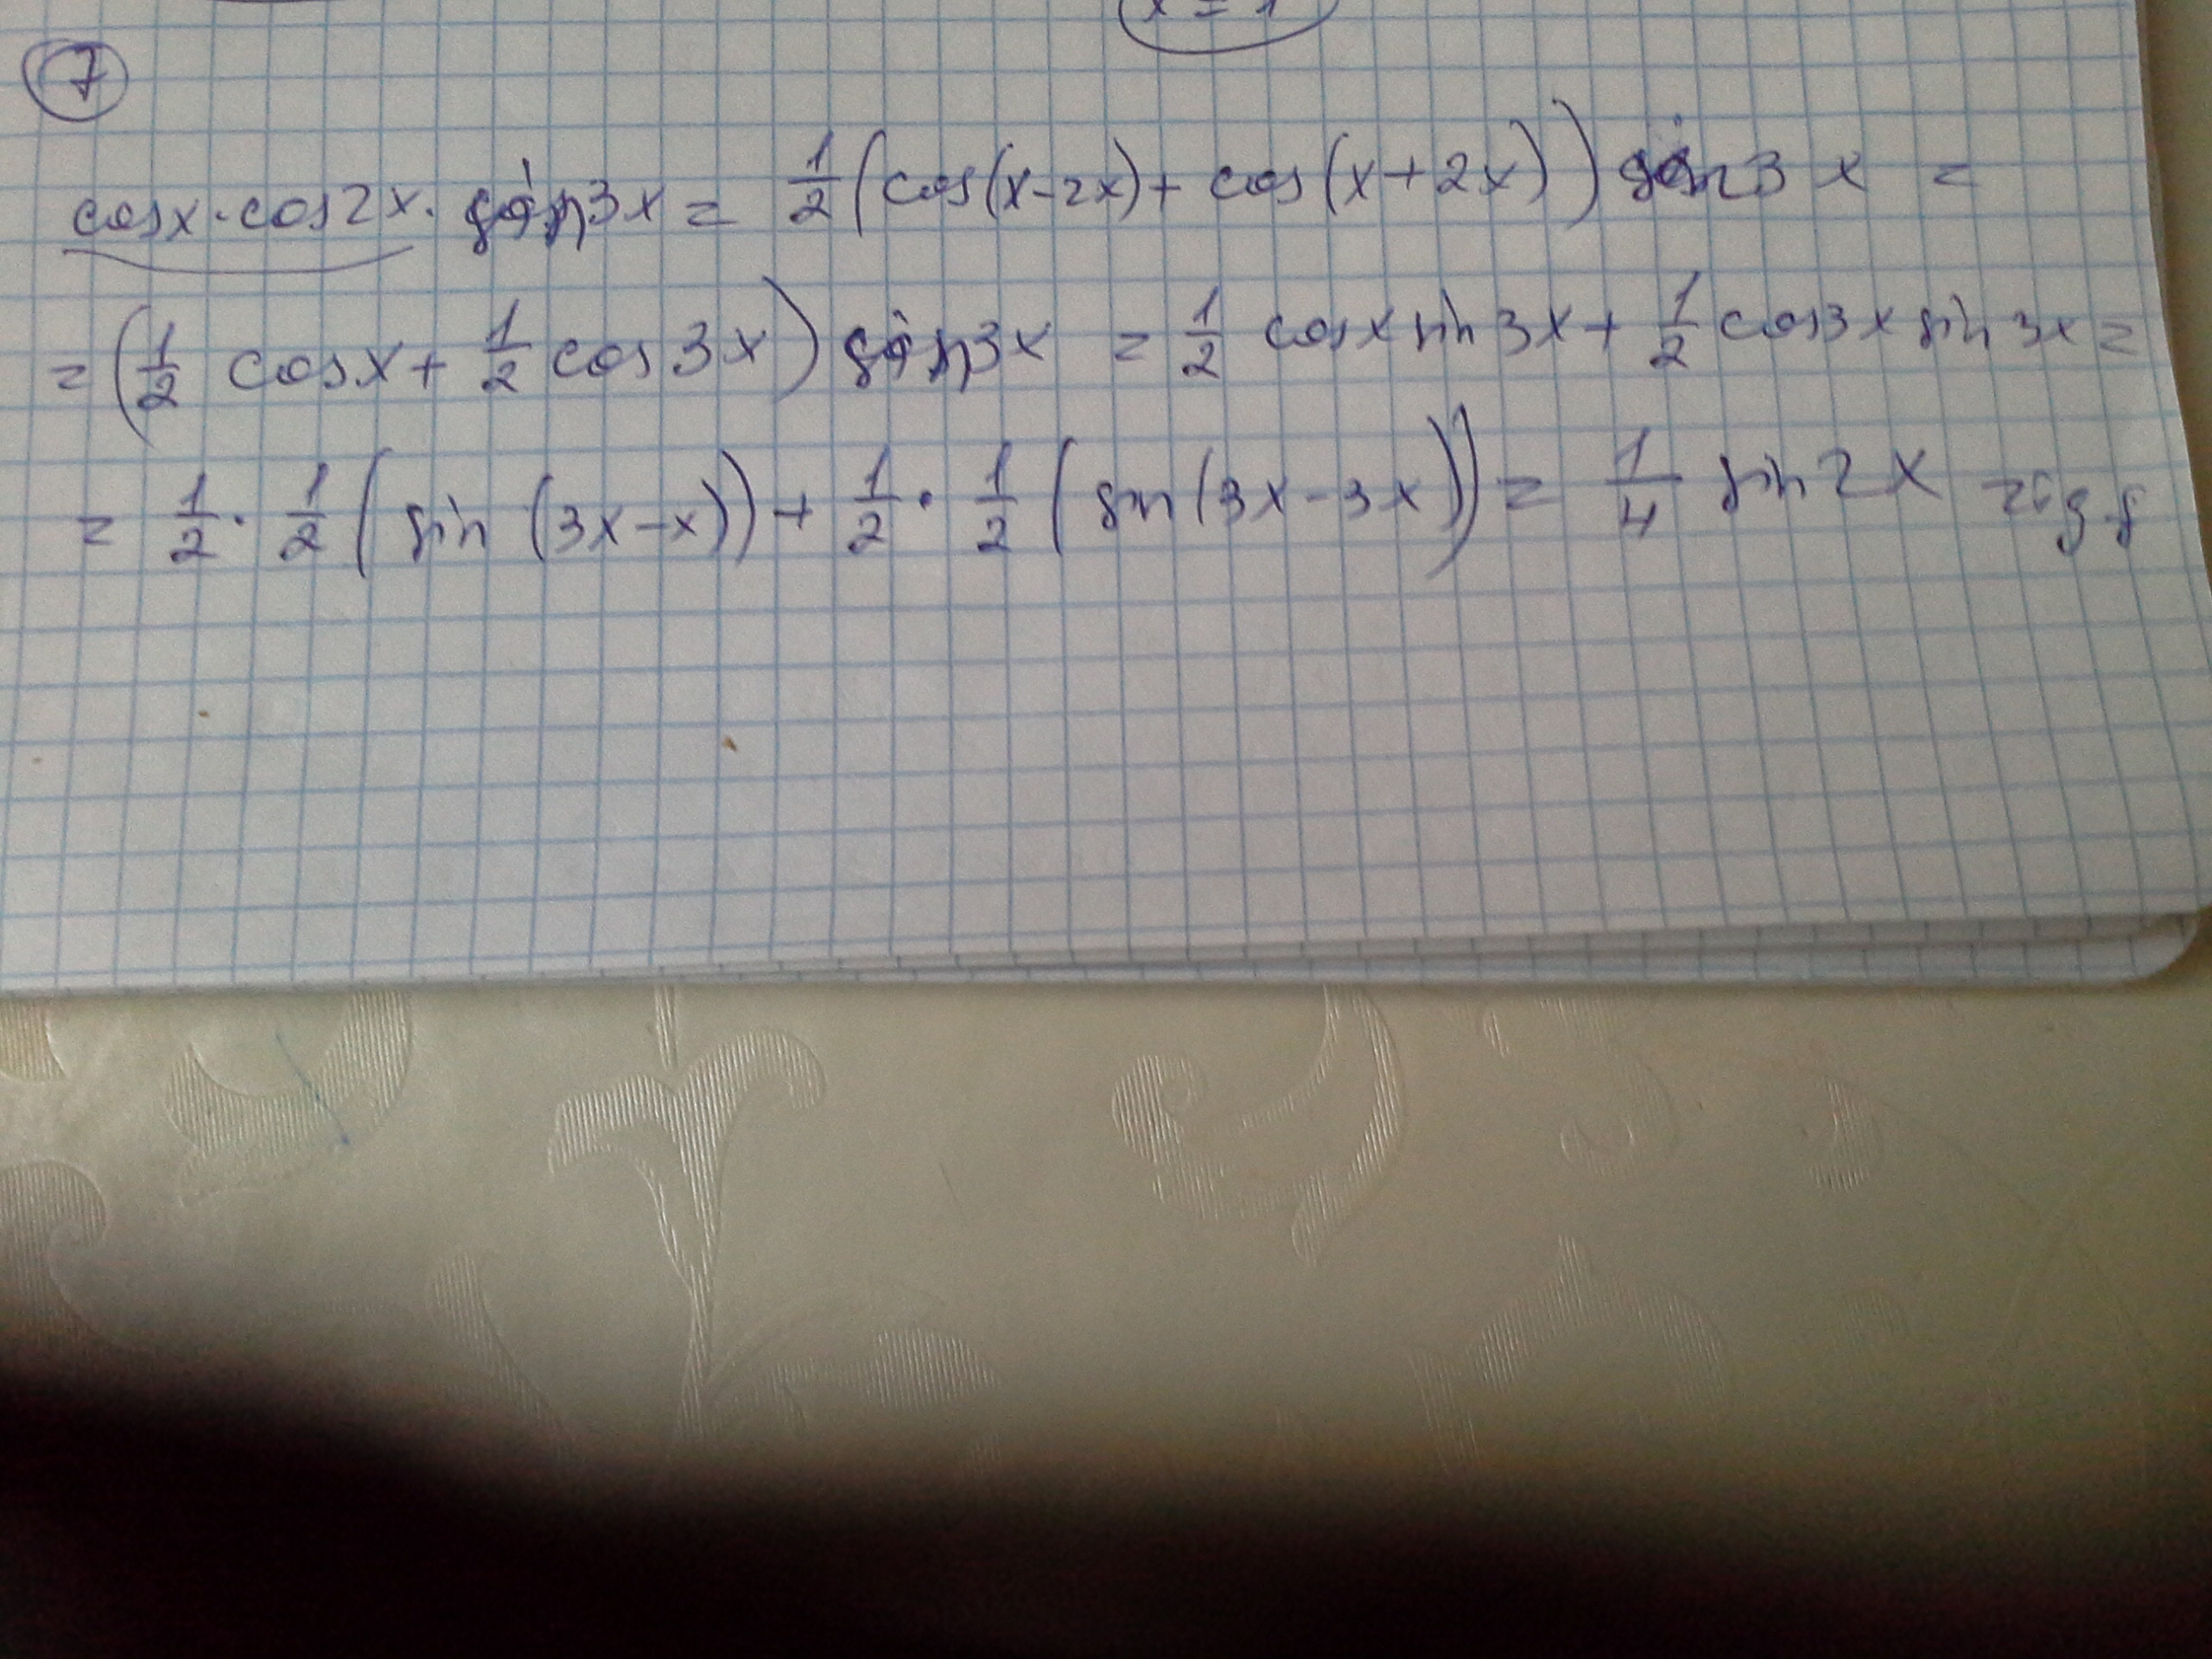 x = 1
7
cosx·cos2x·sin3x = 1/2(cos(x-2x)+cos(x+2x))sin3x =
=(1/2 cosx+1/2 cos3x)sin3x = 1/2 cosx sin3x+1/2 cos3x sin3x=
= 1/2·1/2(sin(3x-x))+1/2·1/2(sin(3x-3x))= 1/4 sin2x